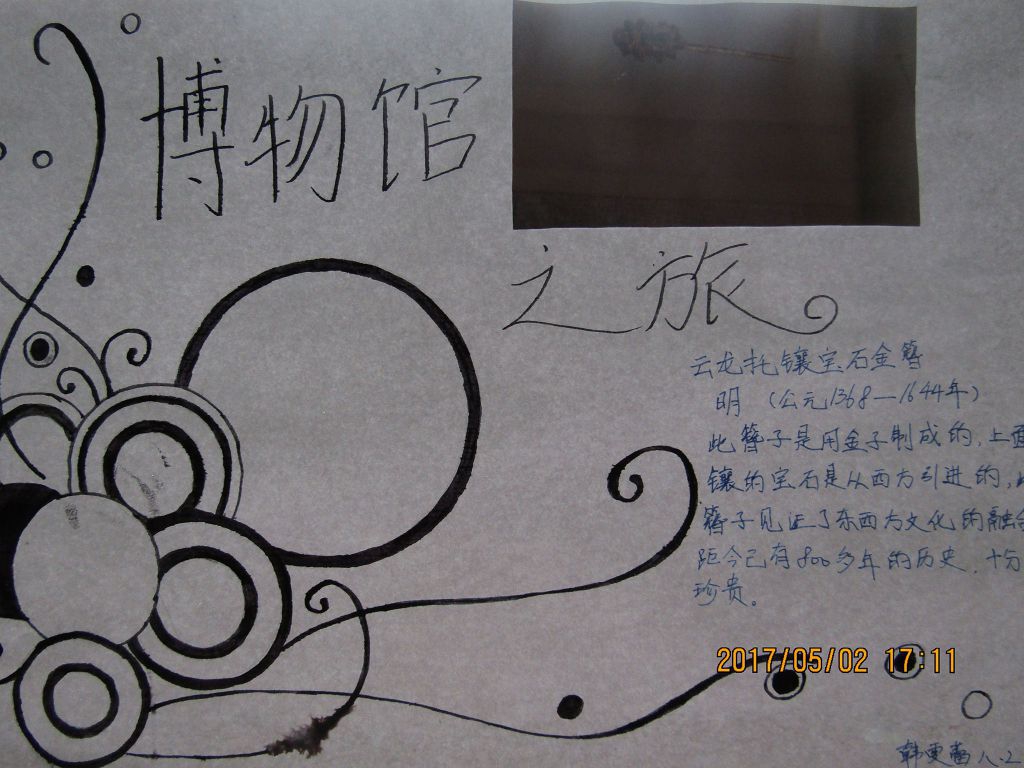 博物馆
之旅
云龙托镶宝石金簪
明 (公元1368—1644年)
此簪子是用金子制成的,上面
镶的宝石是从西方引进的,此
簪子见证了东西方文化的融合
距今已有800多年的历史,十分
珍贵。
2017/05/02 17:11
韩 八.2